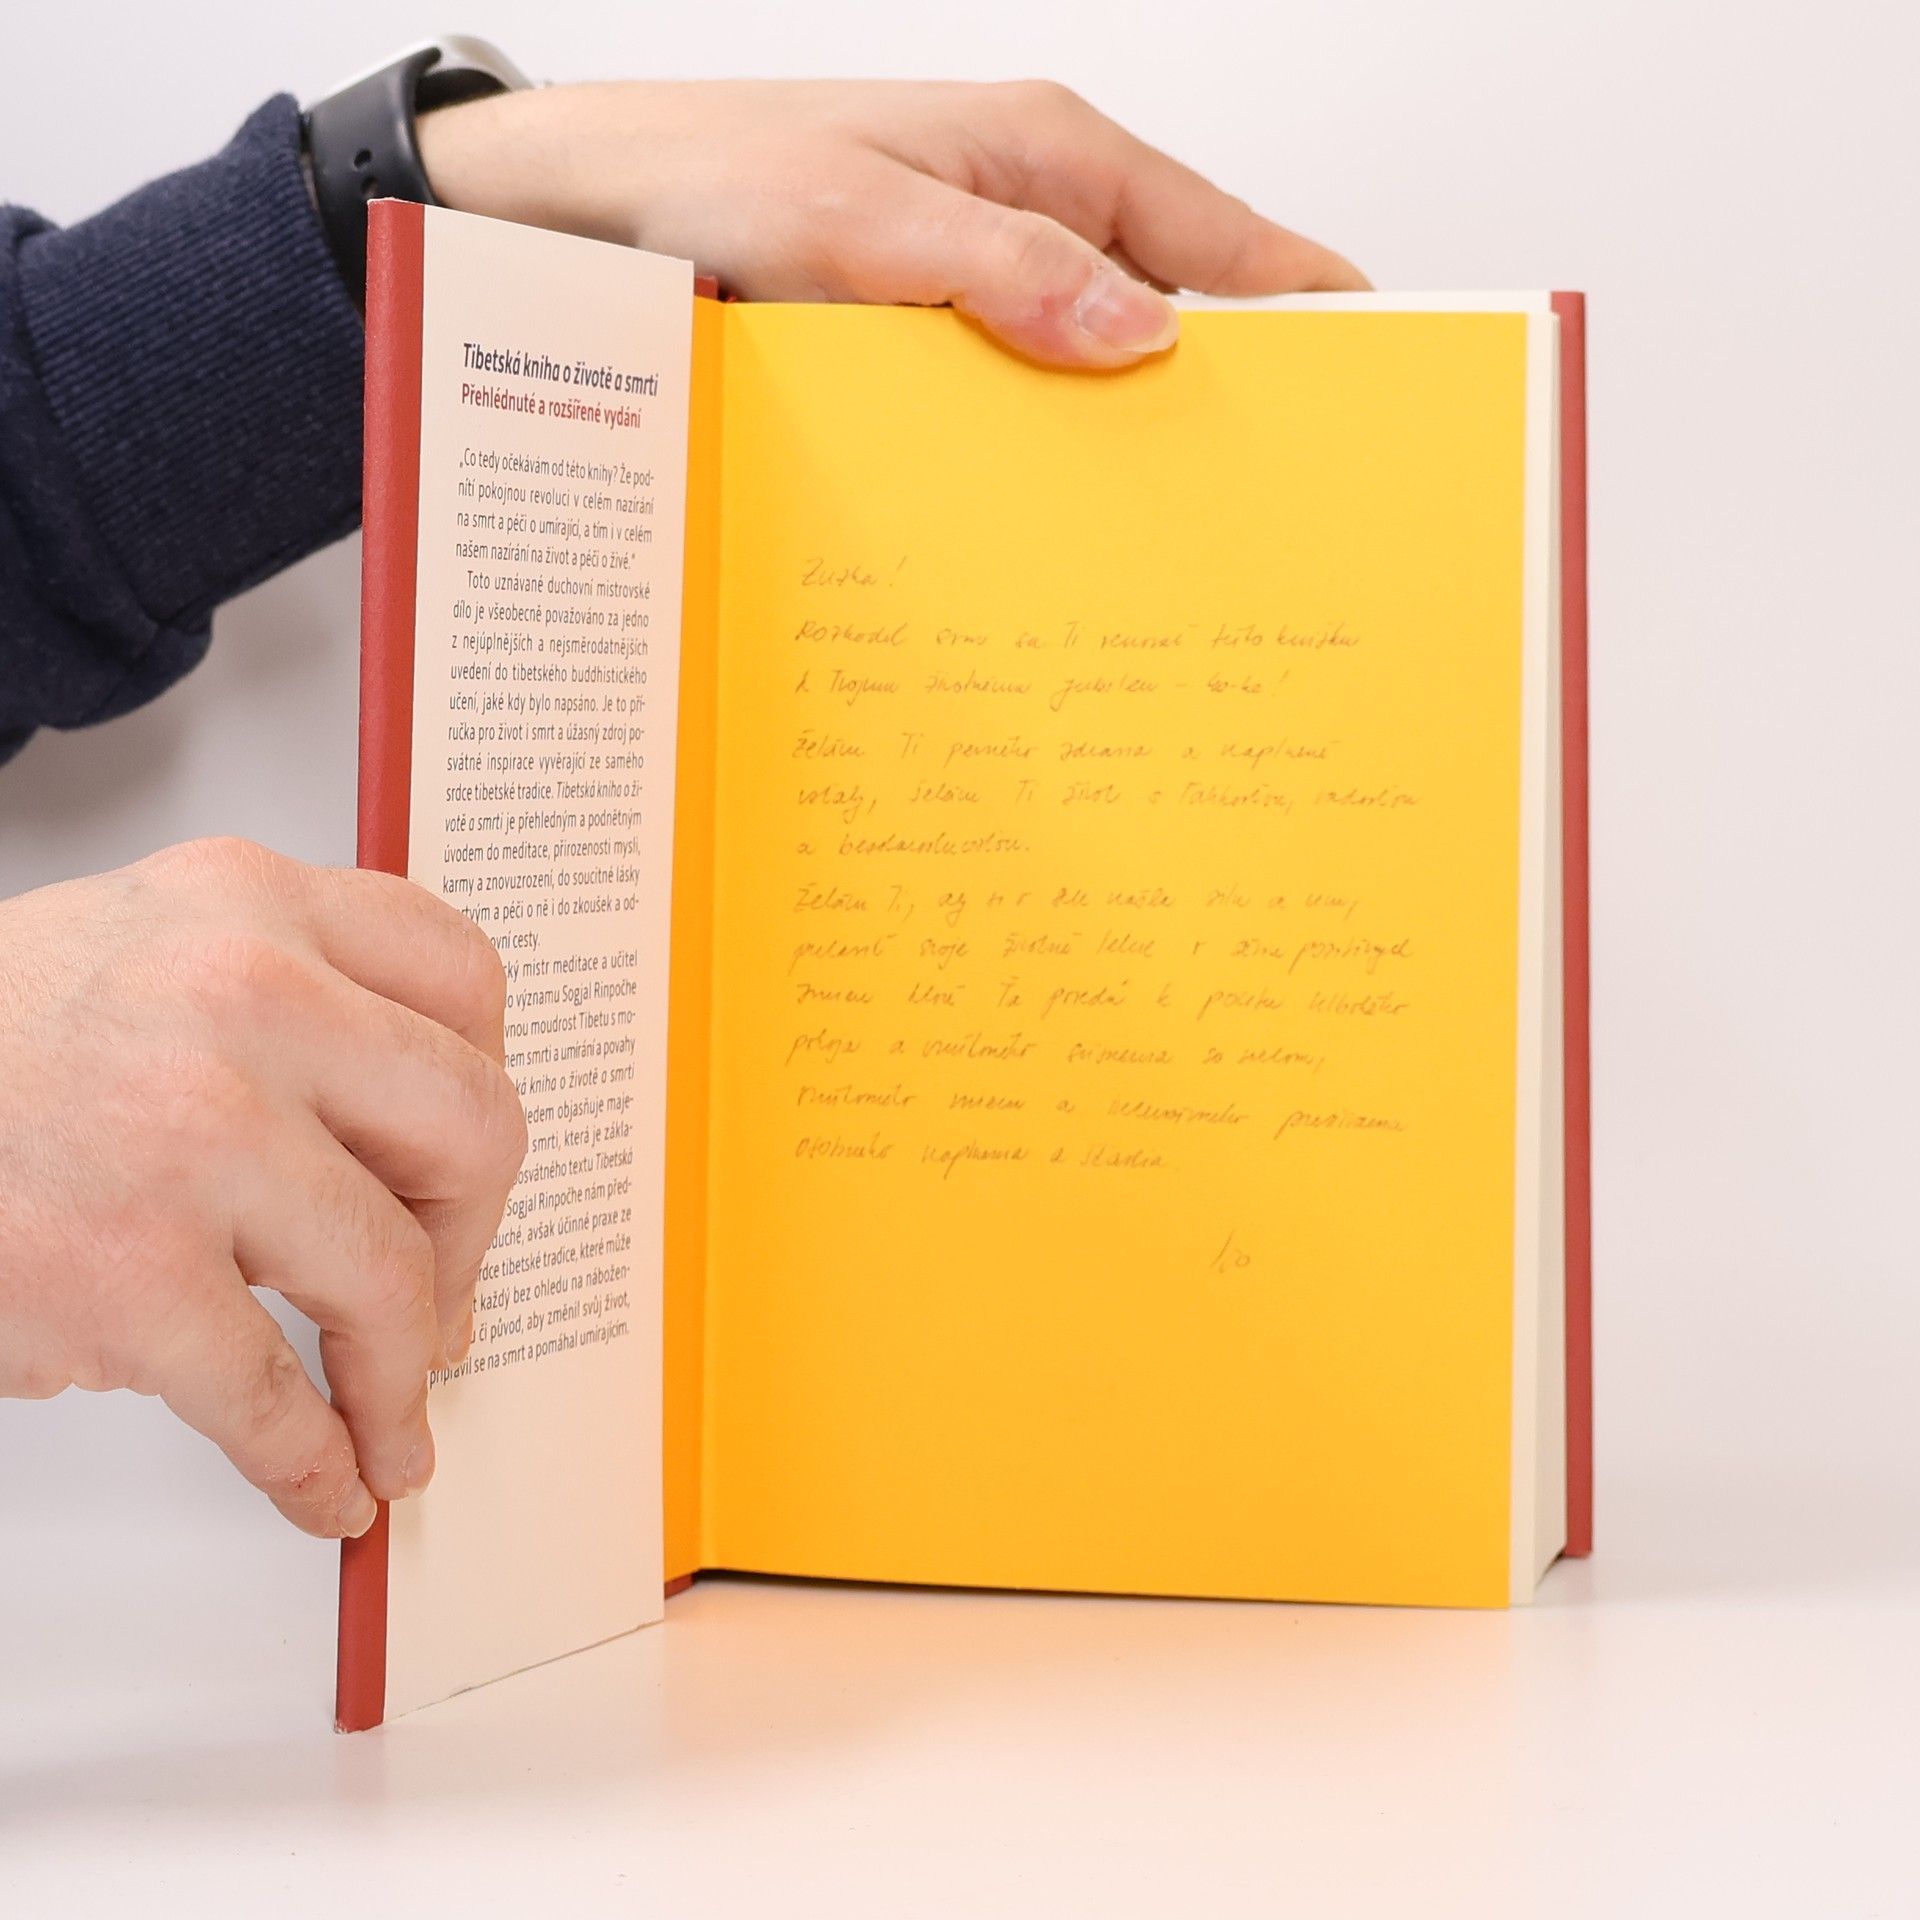 Tibetská kniha o životě a smrti
Přehlédnuté a rozšířené vydání
„Co tedy očekávám od této knihy? Že pod-
nítí pokojnou revoluci v celém nazírání
na smrt a péči o umírající, a tím i v celém
našem nazírání na život a péči o živé."
Toto uznávané duchovní mistrovské
dílo je všeobecně považováno za jedno
z nejúplnějších a nejsměrodatnějších
uvedení do tibetského buddhistického
učení, jaké kdy bylo napsáno. Je to pří-
ručka pro život i smrt a úžasný zdroj po-
svátné inspirace vyvěrající ze samého
srdce tibetské tradice. Tibetská kniha o ži-
votě a smrti je přehledným a podnětným
úvodem do meditace, přirozenosti mysli,
karmy a znovuzrození, do soucitné lásky
a péči o ně i do zkoušek a od-
cesty.
mistr meditace a učitel
významu Sogjal Rinpočhe
moudrost Tibetu s mo-
smrti a umírání a povahy
kniha o životě a smrti
objasňuje maje-
smrti, která je zákla-
textu Tibetská
Sogjal Rinpočhe nám před-
avšak účinné praxe ze
tibetské tradice, které může
každý bez ohledu na nábožen-
či původ, aby změnil svůj život,
připravil se na smrt a pomáhal umírajícím.
Zuzka!
Rozhodol som sa Ti venovať túto knižku
k Tvojmu životnému jubileu - 40-ke!
Želám Ti pevného zdravia a naplnené
vzťahy, želám Ti život s ľahkosťou, radosťou
a
Želám Ti, aby si v sebe našla silu a um,
svoje životné lekcie v
zmien ktoré Ťa k pocitu hlbokého
pokoja a vnútorného so svetom,
vnútorného mieru a
osobného naplnenia a šťastia.